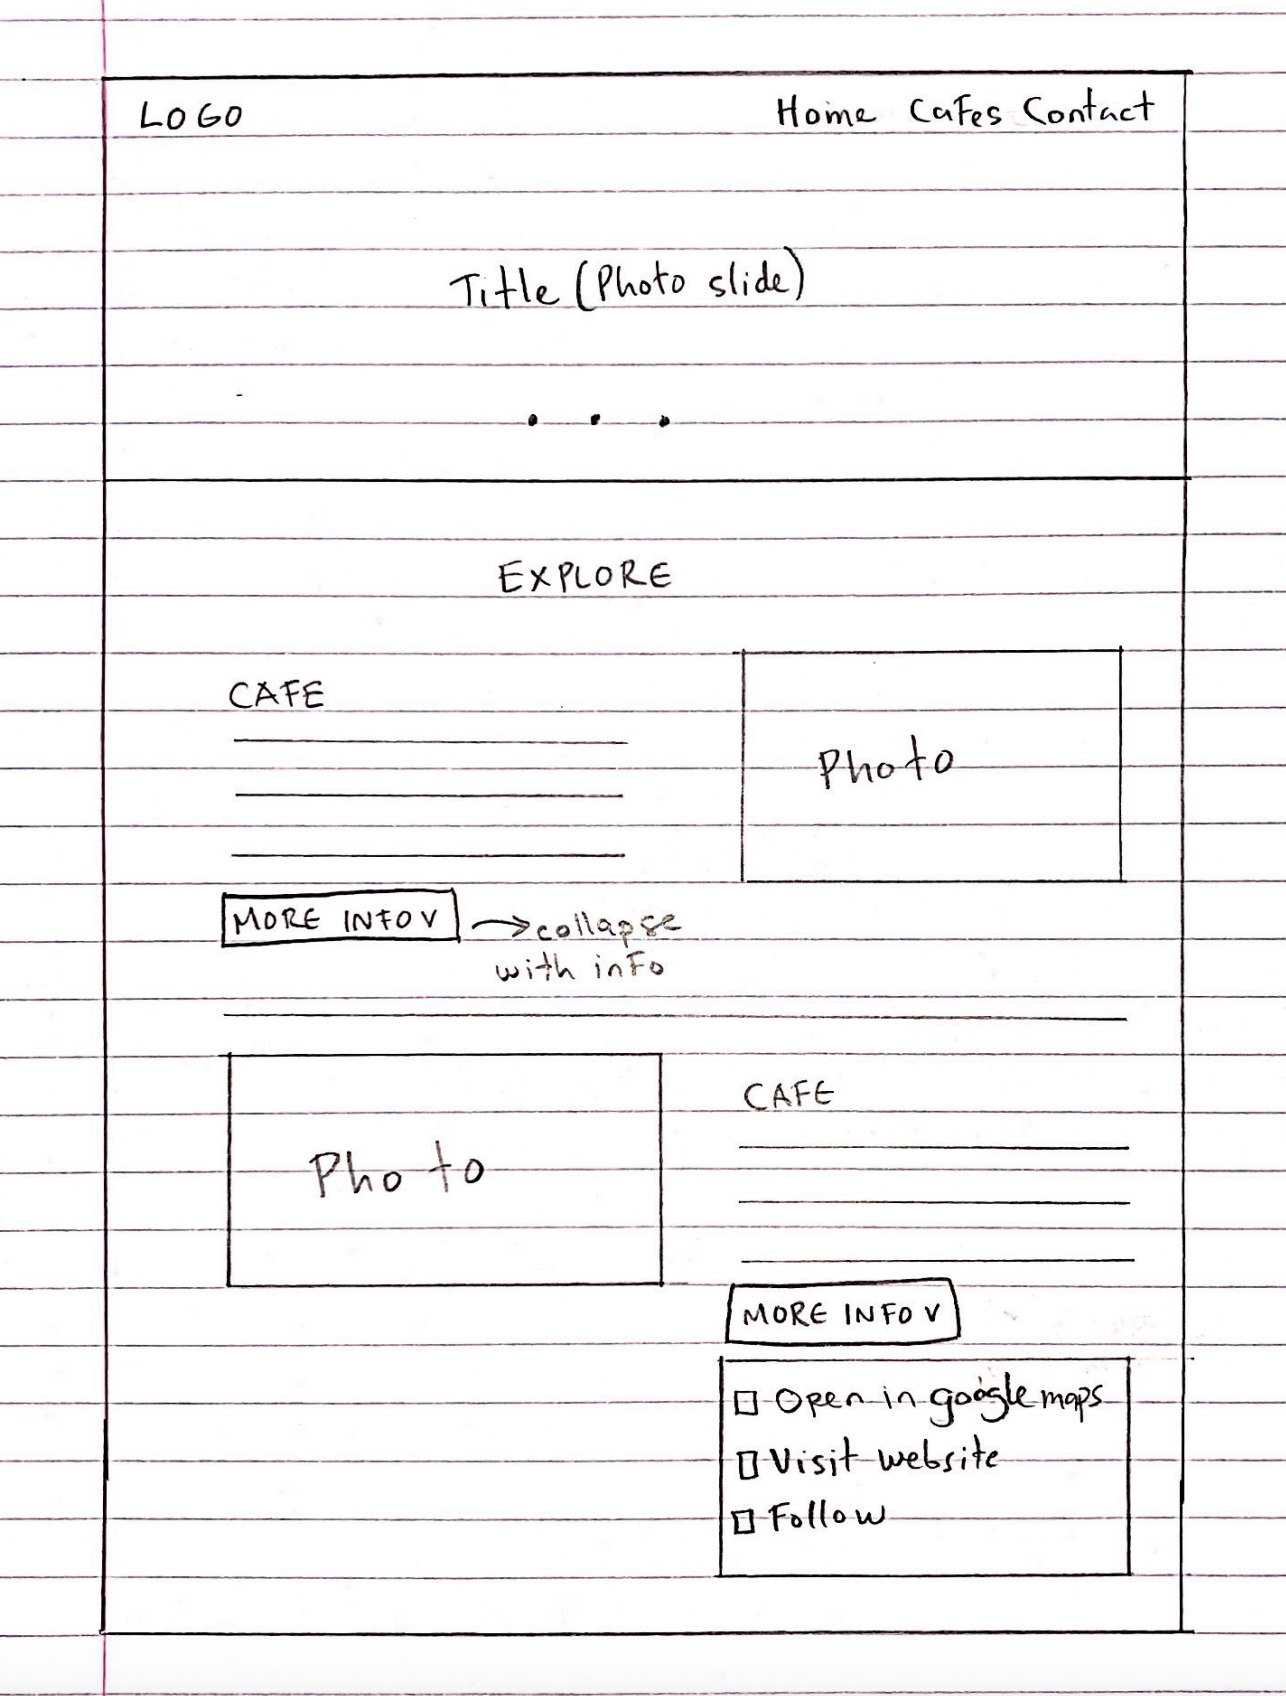 LOGO
Home Cafes Contact
Title (Photo slide)
EXPLORE
CAFE
Photo
MORE INFO V
collapse
with info
Photo
CAFE
MORE INFO V
Open in google maps
Visit website
Follow